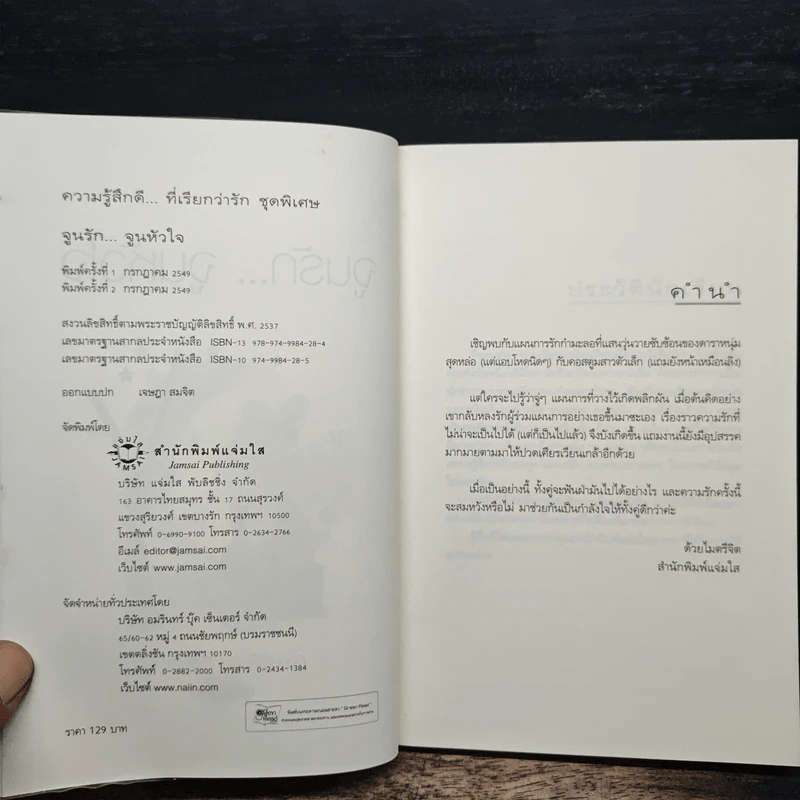 ความรู้สึกดี... ที่เรียกว่ารัก ชุดพิเศษ
จูนรัก... จูนหัวใจ
พิมพ์ครั้งที่ 1 กรกฎาคม 2549
พิมพ์ครั้งที่ 2 กรกฎาคม 2549
สงวนลิขสิทธิ์ตามพระราชบัญญัติลิขสิทธิ์ พ.ศ. 2537
เลขมาตรฐานสากลประจำหนังสือ ISBN-13 978-974-9984-28-4
เลขมาตรฐานสากลประจำหนังสือ ISBN-10 974-9984-28-5
ออกแบบปก เจษฎา สมจิต
จัดพิมพ์โดย
แจ่มใส
JAMSAI
สำนักพิมพ์แจ่มใส
Jamsai Publishing
บริษัท แจ่มใส พับลิชชิ่ง จำกัด
163 อาคารไทยสมุทร ชั้น 17 ถนนสุรวงศ์
แขวงสุริยวงศ์ เขตบางรัก กรุงเทพฯ 10500
โทรศัพท์ 0-6990-9100 โทรสาร 0-2634-2766
อีเมล์ editor@jamsai.com
เว็บไซต์ www.jamsai.com
จัดจำหน่ายทั่วประเทศโดย
บริษัท อมรินทร์ บุ๊ค เซ็นเตอร์ จำกัด
65/60-62 หมู่ 4 ถนนชัยพฤกษ์ (บรมราชชนนี)
เขตตลิ่งชัน กรุงเทพฯ 10170
โทรศัพท์ 0-2882-2000 โทรสาร 0-2434-1384
เว็บไซต์ www.naiin.com
Green Read
ราคา 129 บาท
คำนำ
เชิญพบกับแผนการรักกำมะลอที่แสนวุ่นวายซับซ้อนของดาราหนุ่ม
สุดหล่อ (แต่แอบโหดนิดๆ) กับคอสตูมสาวตัวเล็ก (แถมยังหน้าเหมือนลิง)
แต่ใครจะไปรู้ว่าจู่ๆ แผนการที่วางไว้เกิดพลิกผัน เมื่อต้นคิดอย่าง
เขากลับหลงรักผู้ร่วมแผนการอย่างเธอขึ้นมาซะเอง เรื่องราวความรักที่
ไม่น่าจะเป็นไปได้ (แต่ก็เป็นไปแล้ว) จึงบังเกิดขึ้น แถมงานนี้ยังมีอุปสรรค
มากมายตามมาให้ปวดเศียรเวียนเกล้าอีกด้วย
เมื่อเป็นอย่างนี้ ทั้งคู่จะฟันฝ่ามันไปได้อย่างไร และความรักครั้งนี้
จะสมหวังหรือไม่ มาช่วยกันเป็นกำลังใจให้ทั้งคู่ดีกว่าค่ะ
ด้วยไมตรีจิต
สำนักพิมพ์แจ่มใส